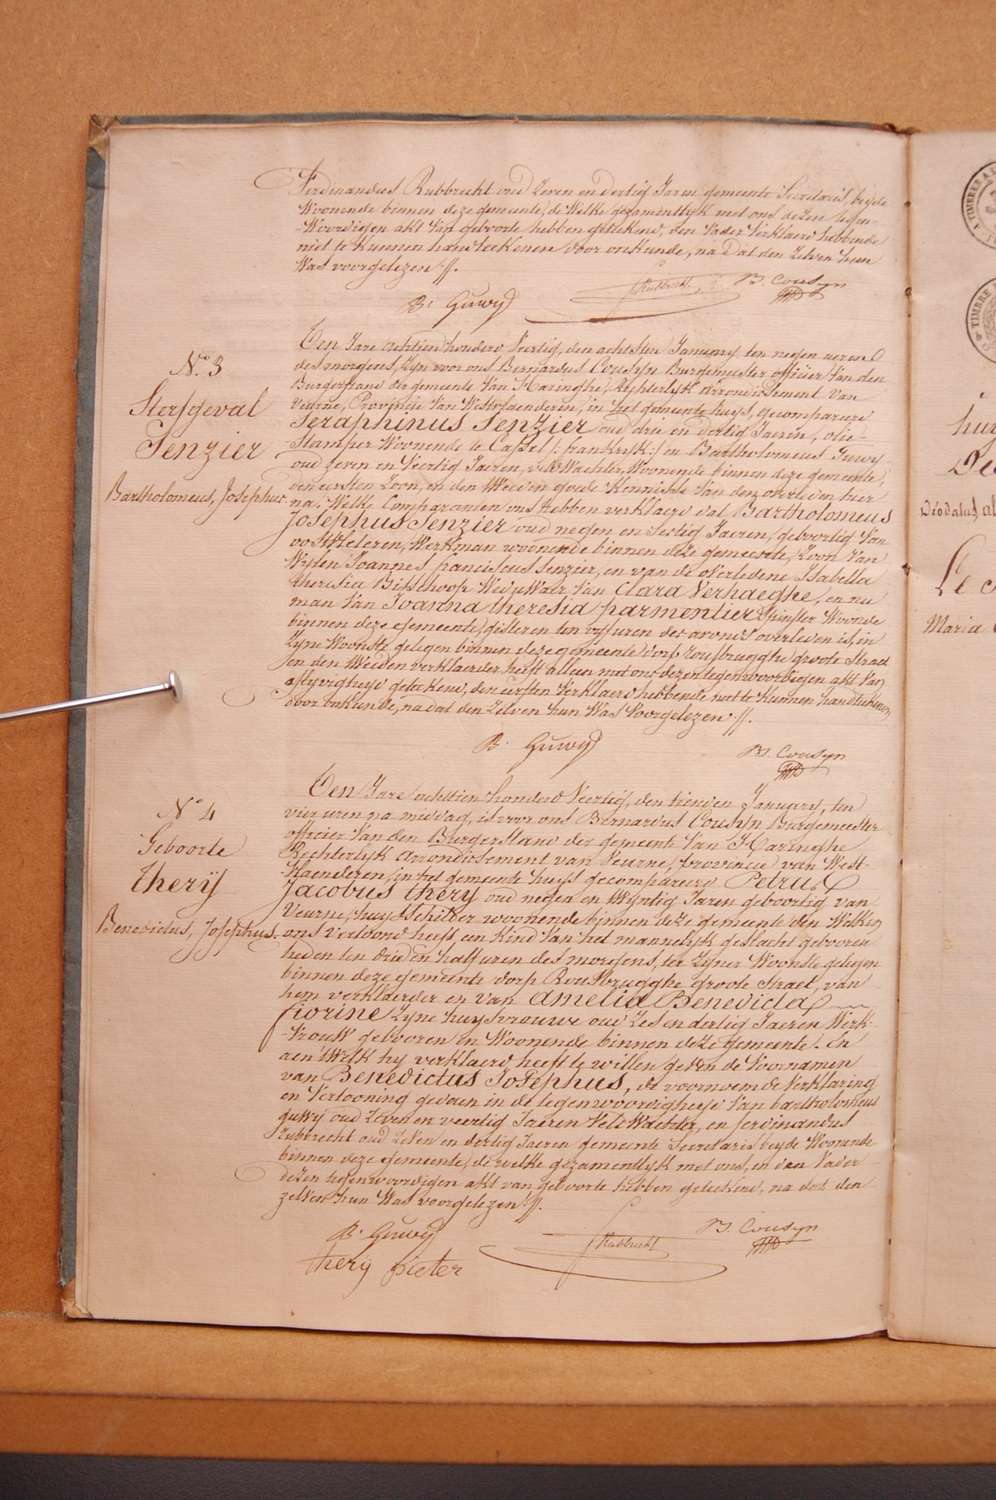 Ferdinandus Rubbrecht oud zeven en dertig Jaren gemeente Secretaris, beyde
Woonende binnen deze gemeente, de Welke gezamentlijk met ons dezen tegen-
-Woordigen akt van geboorte hebben geteekend, den Vader Verklaerd hebbende
niet te kunnen handteekenen door onkunde, na dat den zelven hun
Was voorgelezen //.
B. Guwy
Rubbrecht
B. Cousyn
N.° 3
Sterfgeval
Senzier
Bartholomeus, Josephus
Een Jare achtien honderd Veertig, den achtsten January ten negen ueren
des morgens, Zyn voor ons Bernardus Cousyn Burgemeester officier van den
Burgerstand der gemeente Van Haringhe, Rechterlyk Arrondissement van
Veurne, Provincie Van Westvlaenderen, in het gemeente huys, gecompareerd
Seraphinus Senzier oud drie en dertig Jaeren, olie-
Stamper Woonende te Cassel (: frankryk :) en Bartholomeus Guwy
oud zeven en Veertig Jaeren, Veld Wachter, Woonende binnen deze gemeente,
den eersten Zoon, en den tweeden goede Kennisse Van den overleden hier
na, Welke Comparanten ons hebben verklaerd dat Bartholomeus
Josephus Senzier oud negen en Sestig Jaeren, geboortig Van
oostvleteren, Werkman woonende binnen deze gemeente, Zoon Van
Wylen Joannes franciscus Senzier, en van de overledene Isabella
theresia Bisschoop Weduwaer Van Clara Verhaeghe, en nu
man Van Joanna theresia parmentier Spinster Woonende
binnen deze gemeente, gisteren ten vyf uren des avonds overleden is, in
Zyne Woonste gelegen binnen deze gemeente dorp Rousbrugghe groote Straet
en den tweeden verklaerder heeft alleen met ons dezen tegenwoordigen akt Van
aflyvigheyd geteekend, den eersten Verklaerd hebbende niet te kunnen handteekenen
door onkunde, na dat den Zelven hun Was Voorgelezen //.
B. Guwy
B. Cousyn
N.° 4
Geboorte
therij
Benedictus, Josephus
Een Jare achttien honderd Veertig, den tienden January, ten
vier uren na middag, is voor ons Bernardus Cousyn Burgemeester
officier Van den Burgerstand der gemeente Van Haringhe
Rechterlyk arrondissement van Veurne, provincie van West-
-vlaenderen, in het gemeente huys gecompareerd Petrus
Jacobus thery oud negen en Vyftig Jaren geboortig van
Veurne, huys Schilder woonende binnen deze gemeente den Welken
ons vertoond heeft, een Kind Van het mannelyk geslacht geboren
heden ten drie en half uren des morgens, ter Zyner Woonste gelegen
binnen deze gemeente dorp Rousbrugghe groote Straet, van
hem verklaerder en van Amelia Benedicta
fiorine Zyne huysvrouwe oud Zes en dertig Jaeren Werk-
-Vrouw geboren en Woonende binnen deze gemeente. En
aen Welk hy verklaerd heeft te willen geven de Voornamen
van Benedictus Josephus, de voornoemde Verklaring
en Vertooning gedaen in de tegenwoordigheyd Van bartholomeus
guwy oud Zeven en veertig Jaeren Veld Wachter, en ferdinandus
Rubrecht oud Zeven en dertig Jaeren gemeente Secretaris beyde Woonende
binnen deze gemeente, de welke gezamentlyk met ons, en den Vader
dezen tegenwoordigen akt van geboorte hebben geteekend, na dat den
zelven hun Was voorgelezen //.
B. Guwy
Rubbrecht
B. Cousyn
therij pieter
TIMBRE
TIMBRE
Maria